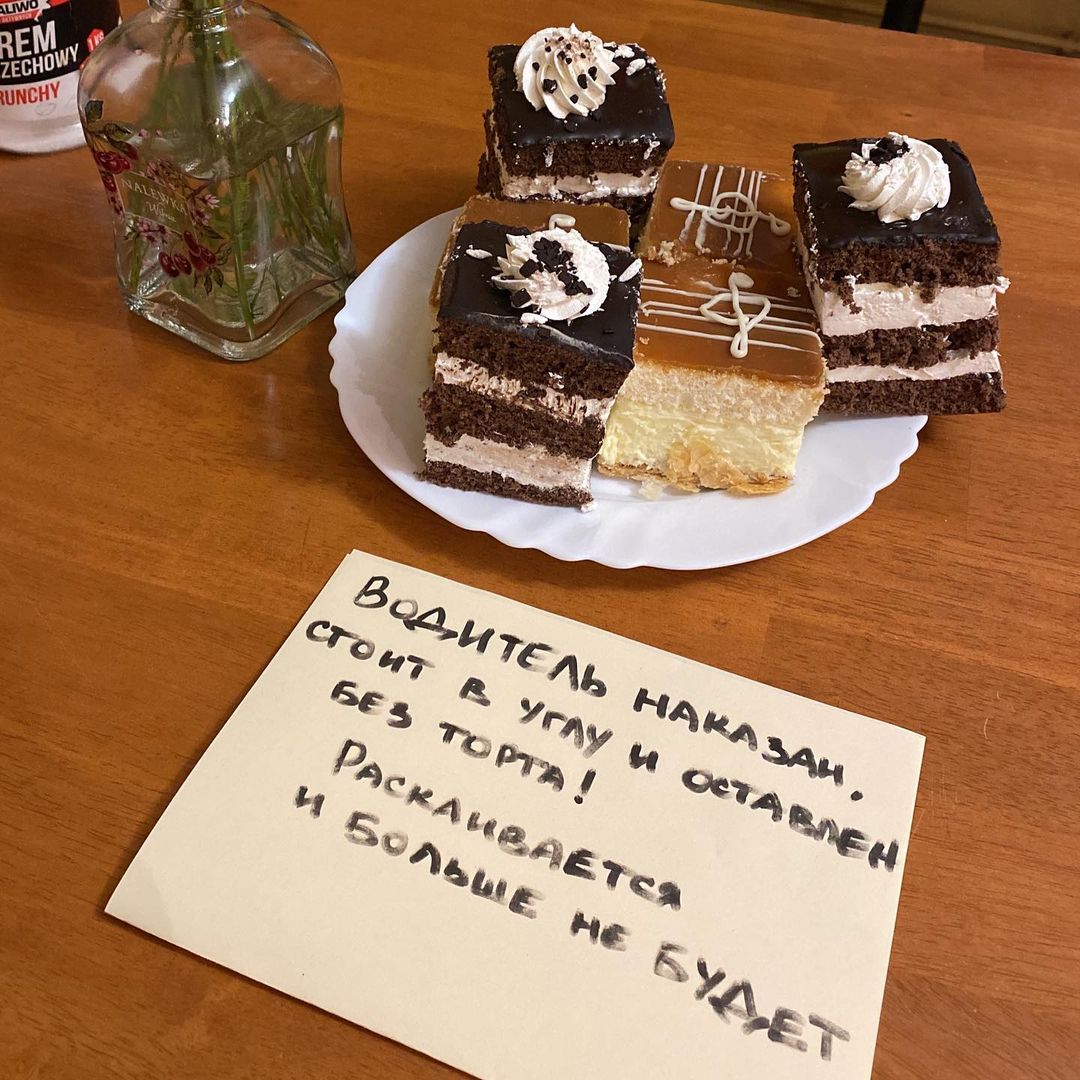 ALIWO
REM
ZECHOWY
RUNCHY
1 KG
NALEWKA
Водитель наказан,
стоит в углу и оставлен
без торта!
Раскаивается
и больше не будет